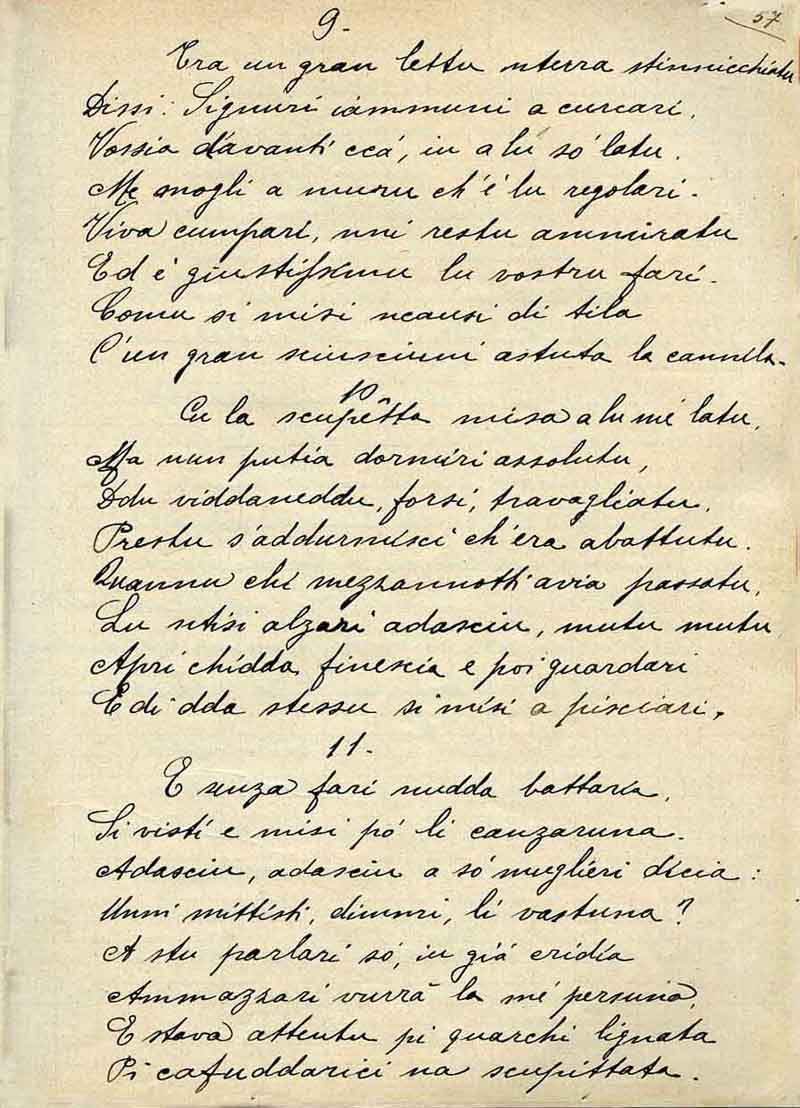 57
9.
Era un gran lettu nterra stinnicchiatu
Dissi: Signuri iammuni a curcari.
Vossia d'avanti ccá, iu a lu só latu.
Me mogli a muru ch'é lu regolari.
Viva cumpari, nni restu ammiratu
Ed é giustissimu lu vostru fari.
Comu si misi ncausi di tila
C'un gran sciusciuni astuta la cannila.
10
Cu la scupêtta misa a lu mé latu,
Ma nun putia dormiri assolutu,
Ddu viddaneddu, forsi, travagliatu,
Prestu s'addurmisci ch'era abattutu.
Quannu chi mezzannotti avia passatu,
Lu ntisi alzari adasciu, mutu mutu
Apri chidda finescia e poi guardari
E di dda stessu si misi a pisciari.
11.
E senza fari nudda battaria,
Si visti e misi pó li canzaruna.
Adasciu, adasciu a só muglieri dicia:
Unni mittisti, dimmi, li vastuna?
A stu parlari só, iu giá cridía
Ammazzari vurrá la mé persuna,
E stava attentu pi quarchi lignata
Pi cafuddarici na scupittata.